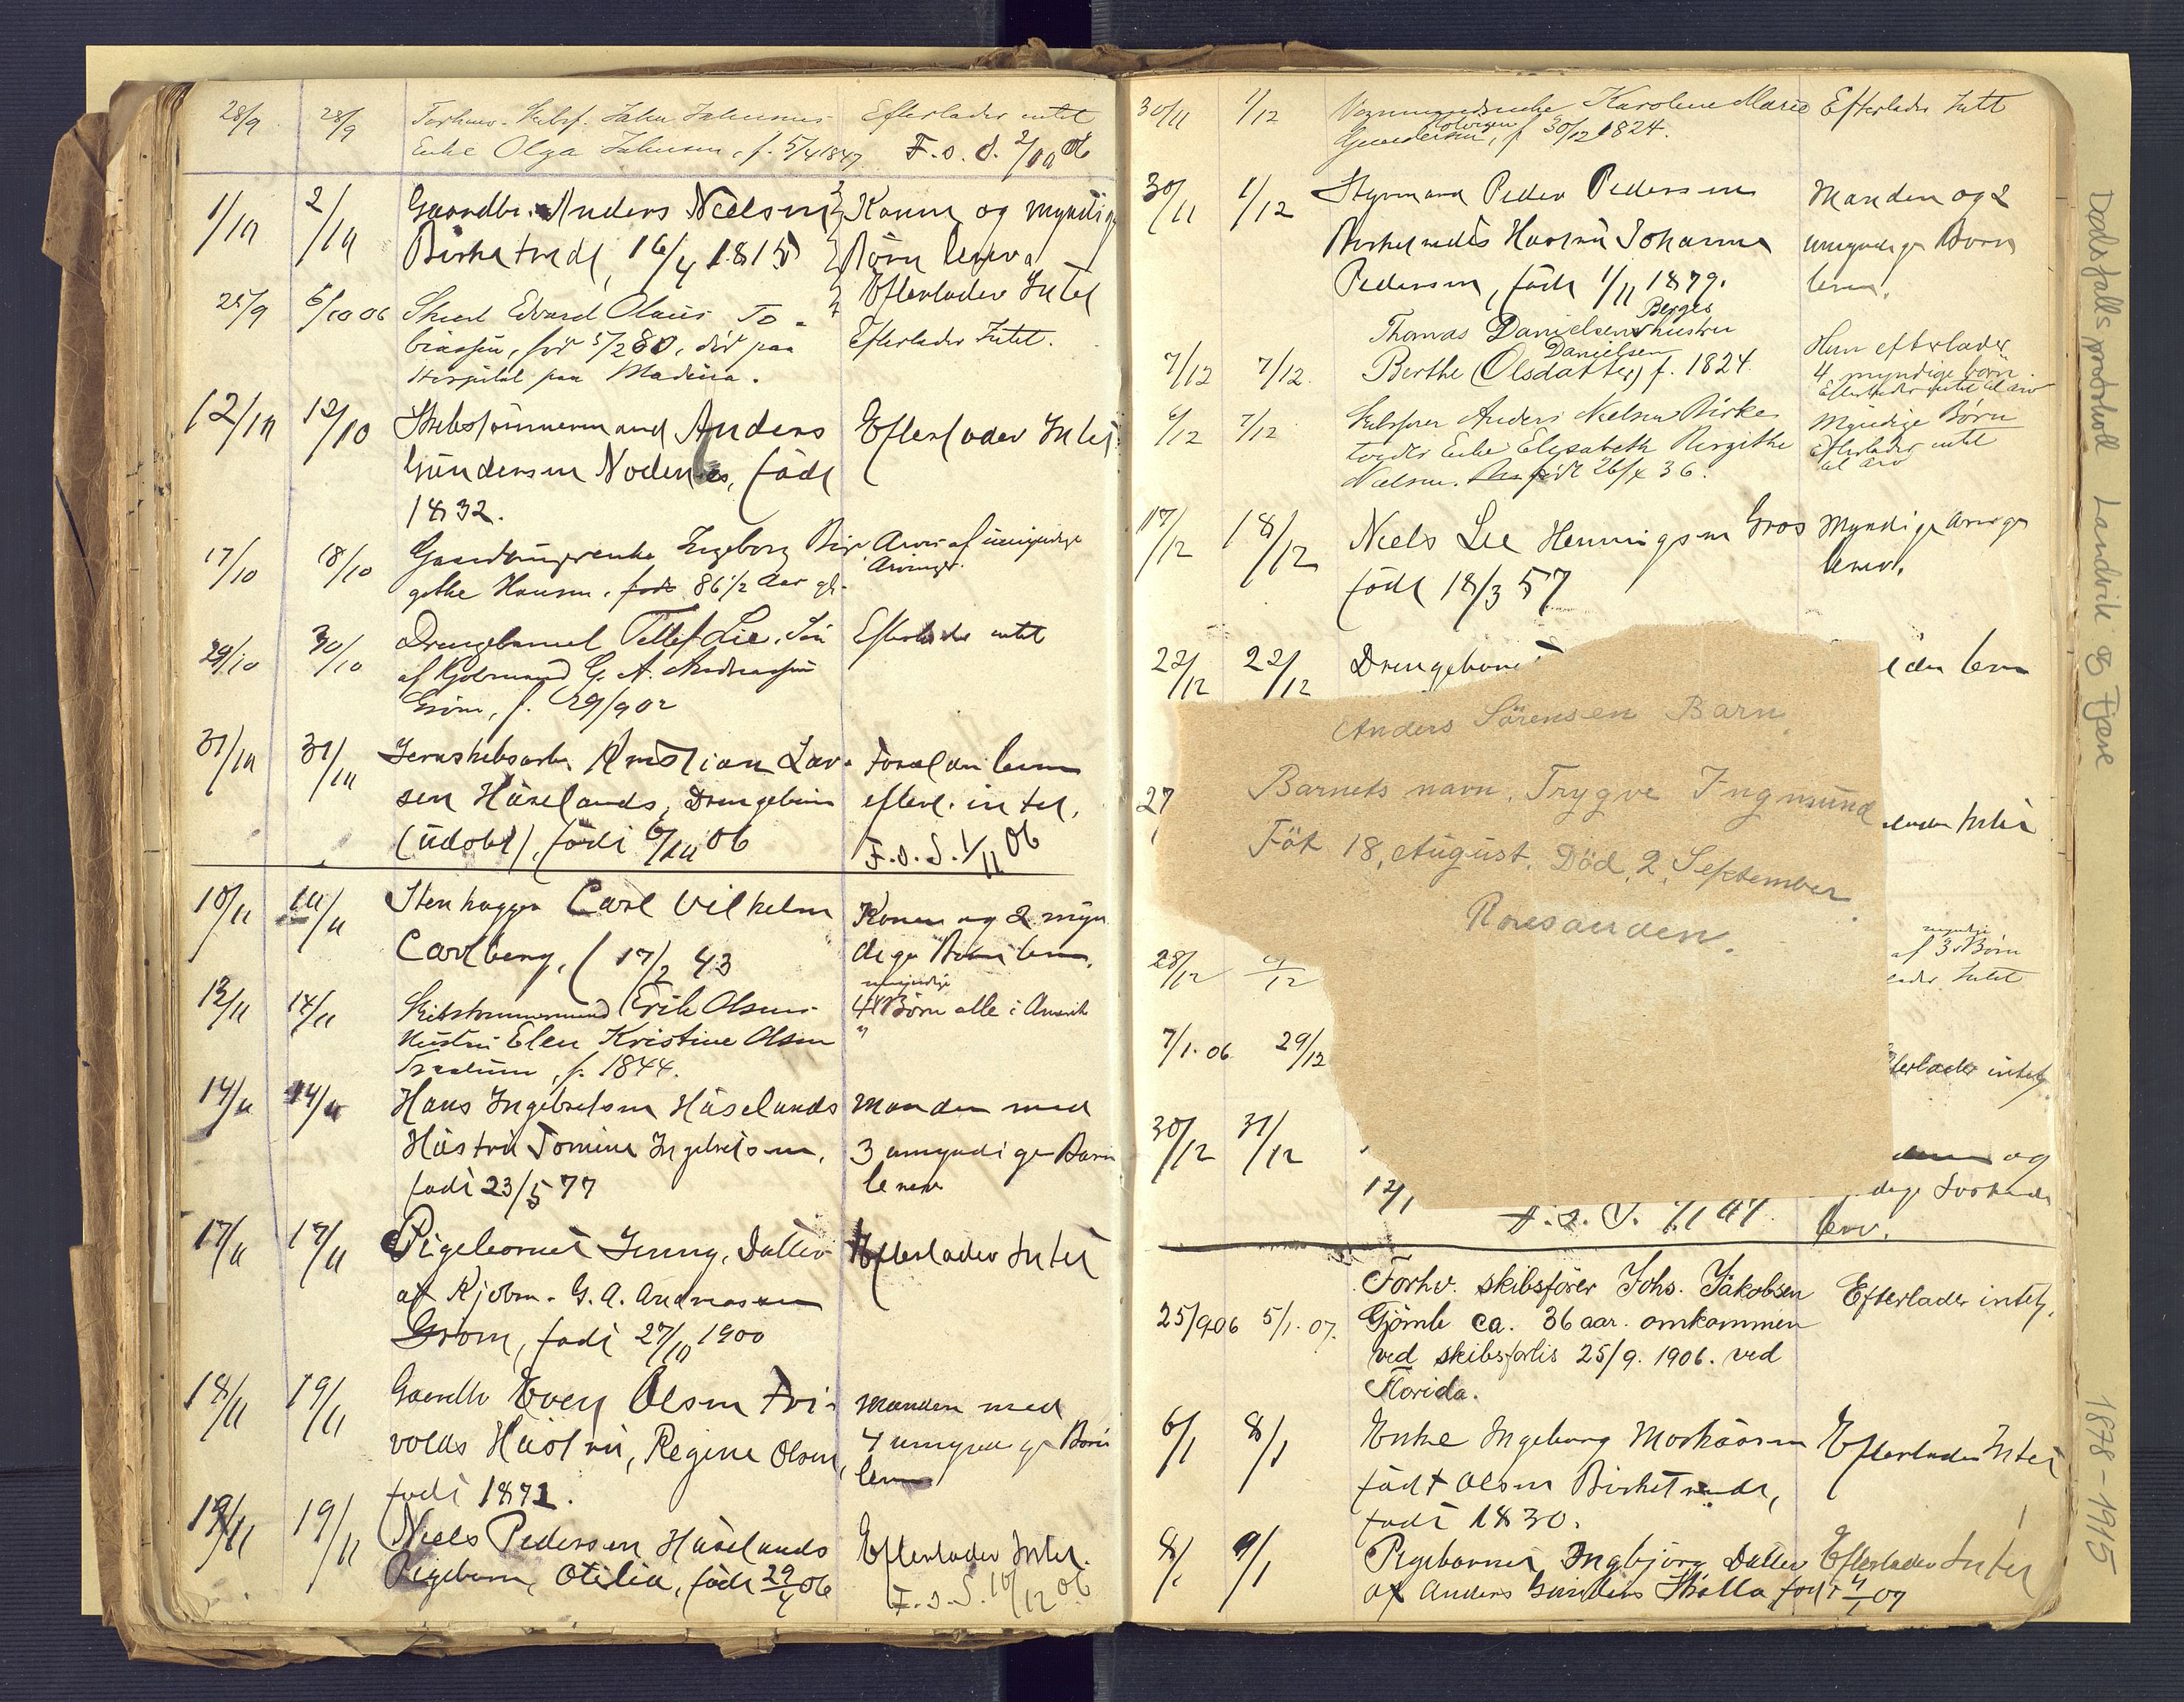 28/9 28/9 Forhenv. Skibsf. John Johnsens Efterlader intet
Enke Olga Johnsen, f. 5/4 1847 F.o.S. 2/10 06
1/10 2/10 Gaardbr. Anders Nielsen Konen og myndige
Birketvedt, 16/4 1815 Børn lever
Efterlader Intet
25/9 6/10 06 Edvard Olaus To- Efterlader Intet.
biassen, før 5/2 80, død paa
Hospital paa Madeira.
12/10 12/10 Skibstømmermand Anders Efterlader Intet
Gundersen Nodenes, født
1832.
17/10 18/10 Ingeborg Bir- af umyndige
githe Hansen, født 86 1/2 Aar gl. Arvinger.
29/10 30/10 Drengebarnet Tellef Lie, Søn Efterlader intet
af Kjøbmand G. A. Andreassen
Grøm, f. 29/9 02
31/10 31/10 Jernskibsarb. Kristian Lar- Forældre lever
sen Håselands, Drengebarn efterl. intet,
(udøbt), født 6/10 06 F.o.S. 1/11 06
10/11 10/11 Stenhugger Carl Vilhelm Konen og 2 myn
Carlberg, f 17/2 43 dige Børn lever,
myndige
13/11 14/11 Skibstømmermand Erik Olsens 4 Børn alle i Amerika
Hustru Elen Kristine Olsen "
f. 1844.
14/11 14/11 Hans Ingebretsen Håselands Manden med
Håstru Tomine Ingebretsen, 3 umyndige Børn
født 23/5 77 lever
17/11 17/11 Pigebarnet Jenny, Datter Efterlader Intet
af Kjøbm. G. A. Andreassen
Grøm, født 27/10 1900
18/11 19/11 Gaardbr Even Olsen Tri- Manden med
volds Håstru, Regine Olsen, 4 umyndige Børn
født 1872. lever
19/11 19/11 Niels Pedersen Håselands Efterlader Intet.
Pigebarn, Otilia, født 29/4 06 F.o.S. 10/12 06
30/11 1/12 Karoline Marie Efterlader Intet
Gundersen, f 30/12 1824.
30/11 1/12 Styrmand Peder Pedersen Manden og 2
Birketvedts Hustru Johanne umyndige Børn
Pedersen, født 1/11 1879. lever.
Berges
Thomas Danielsens hustru
Danielsen Hun efterlader
7/12 7/12 Berthe (Olsdatter) f. 1824. 4 myndige børn.
Efterlader intet al arv
6/12 7/12 Skibsfører Anders Nielsen Birke- Myndige Børn
tvedts Enke Elisabeth Birgithe Efterlader intet
Nielsen. født 26/4 36. al arv
17/12 18/12 Niels Lee Henningsen Gros Myndige Arvinger
født 18/3 57 lever.
22/12 22/12 Drengebarnet lever
Anders Sörensen Barn
Barnets navn, Trygve Ingmund
Föt 18, August, Död, 2, September.
Roresanden.
27 Intet
myndige
28/12 /12 af 3 Børn
Intet
7/1. 06 29/12 Efterlader intet,
30/12 31/12 og
12/1
F.o.S. 1/1 07. lev.
Forhv. skibsfører Johs. Jakobsen Efterlader intet,
25/9 06 5/1. 07. Gjömle ca. 36 aar. omkommen
ved skibsforlis 25/9. 1906. ved
Florida.
6/1 8/1 Enke Ingeborg Markussen Efterlader Intet
født Olsen Birketvedt,
født 1830.
8/1 9/1 Pigebarnet Ingbjörg Datter Efterlader Intet
af Anders Gunders født 4/1 07
Dødsfallsprotokoll Landvik & Fjære 1878-1915